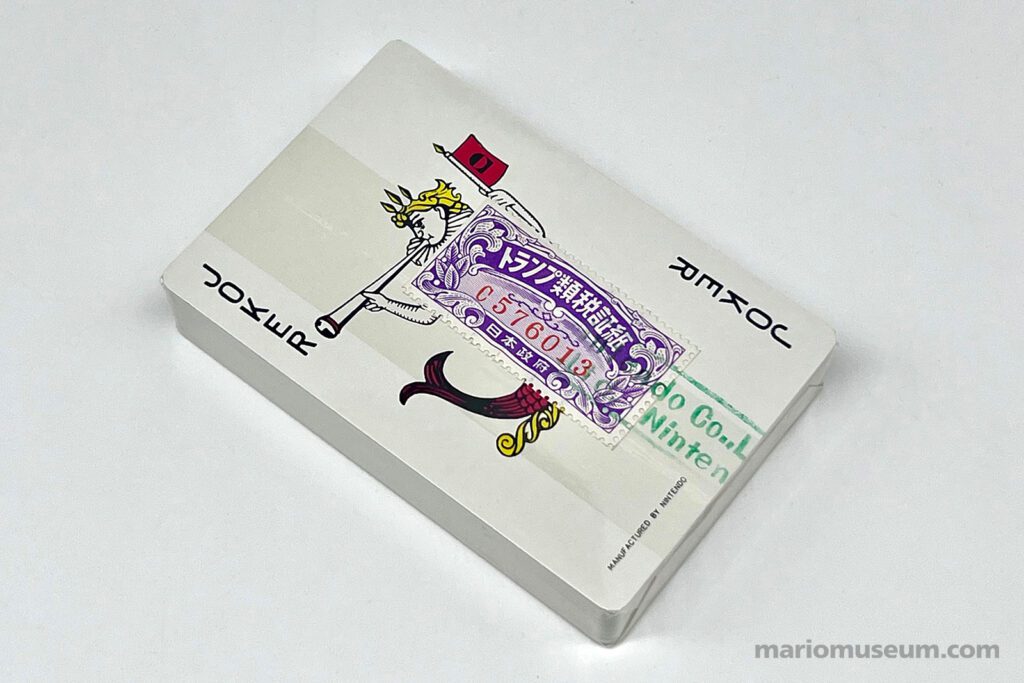 JOKER
JOKER
トランプ類税証紙
C576013
日本政府
do Co., L
Ninten
MANUFACTURED BY NINTENDO
mariomuseum.com